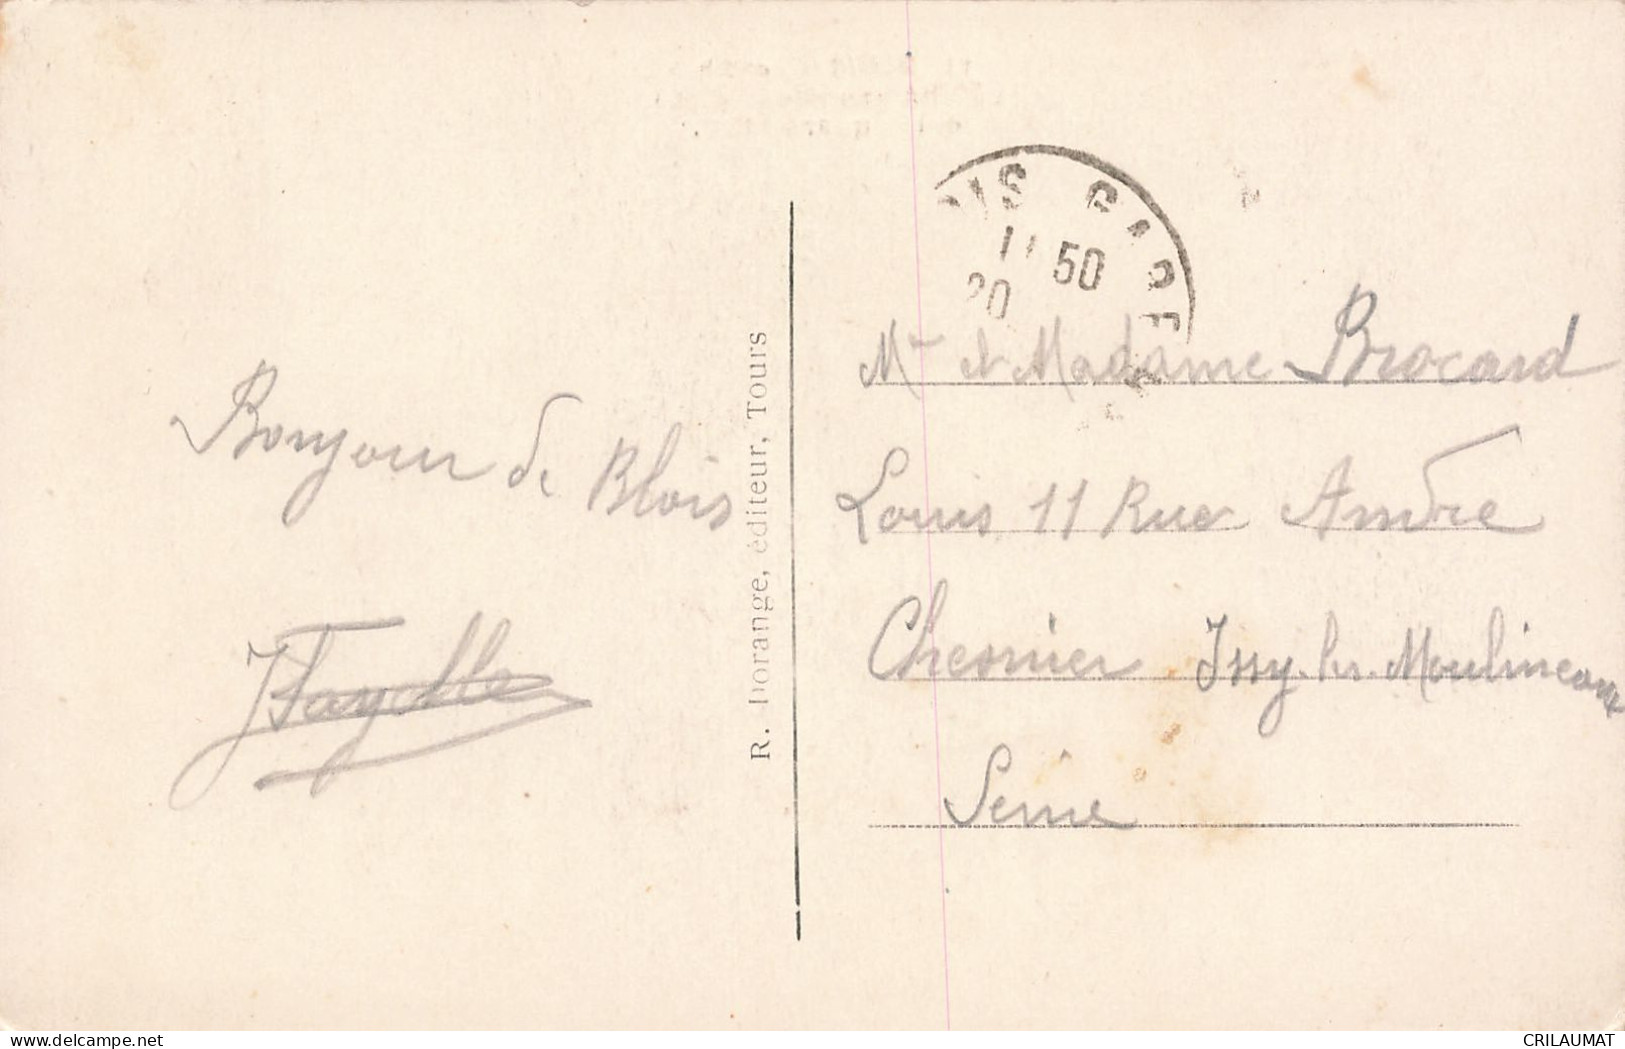 Bonjour de Blois
R. Dorange, éditeur, Tours
GARE
50
20
Mr et Madame Brocard
Louis 11 Rue André
Chesnier Issy les Moulineaux
Seine
www.delcampe.net
CRILAUMAT